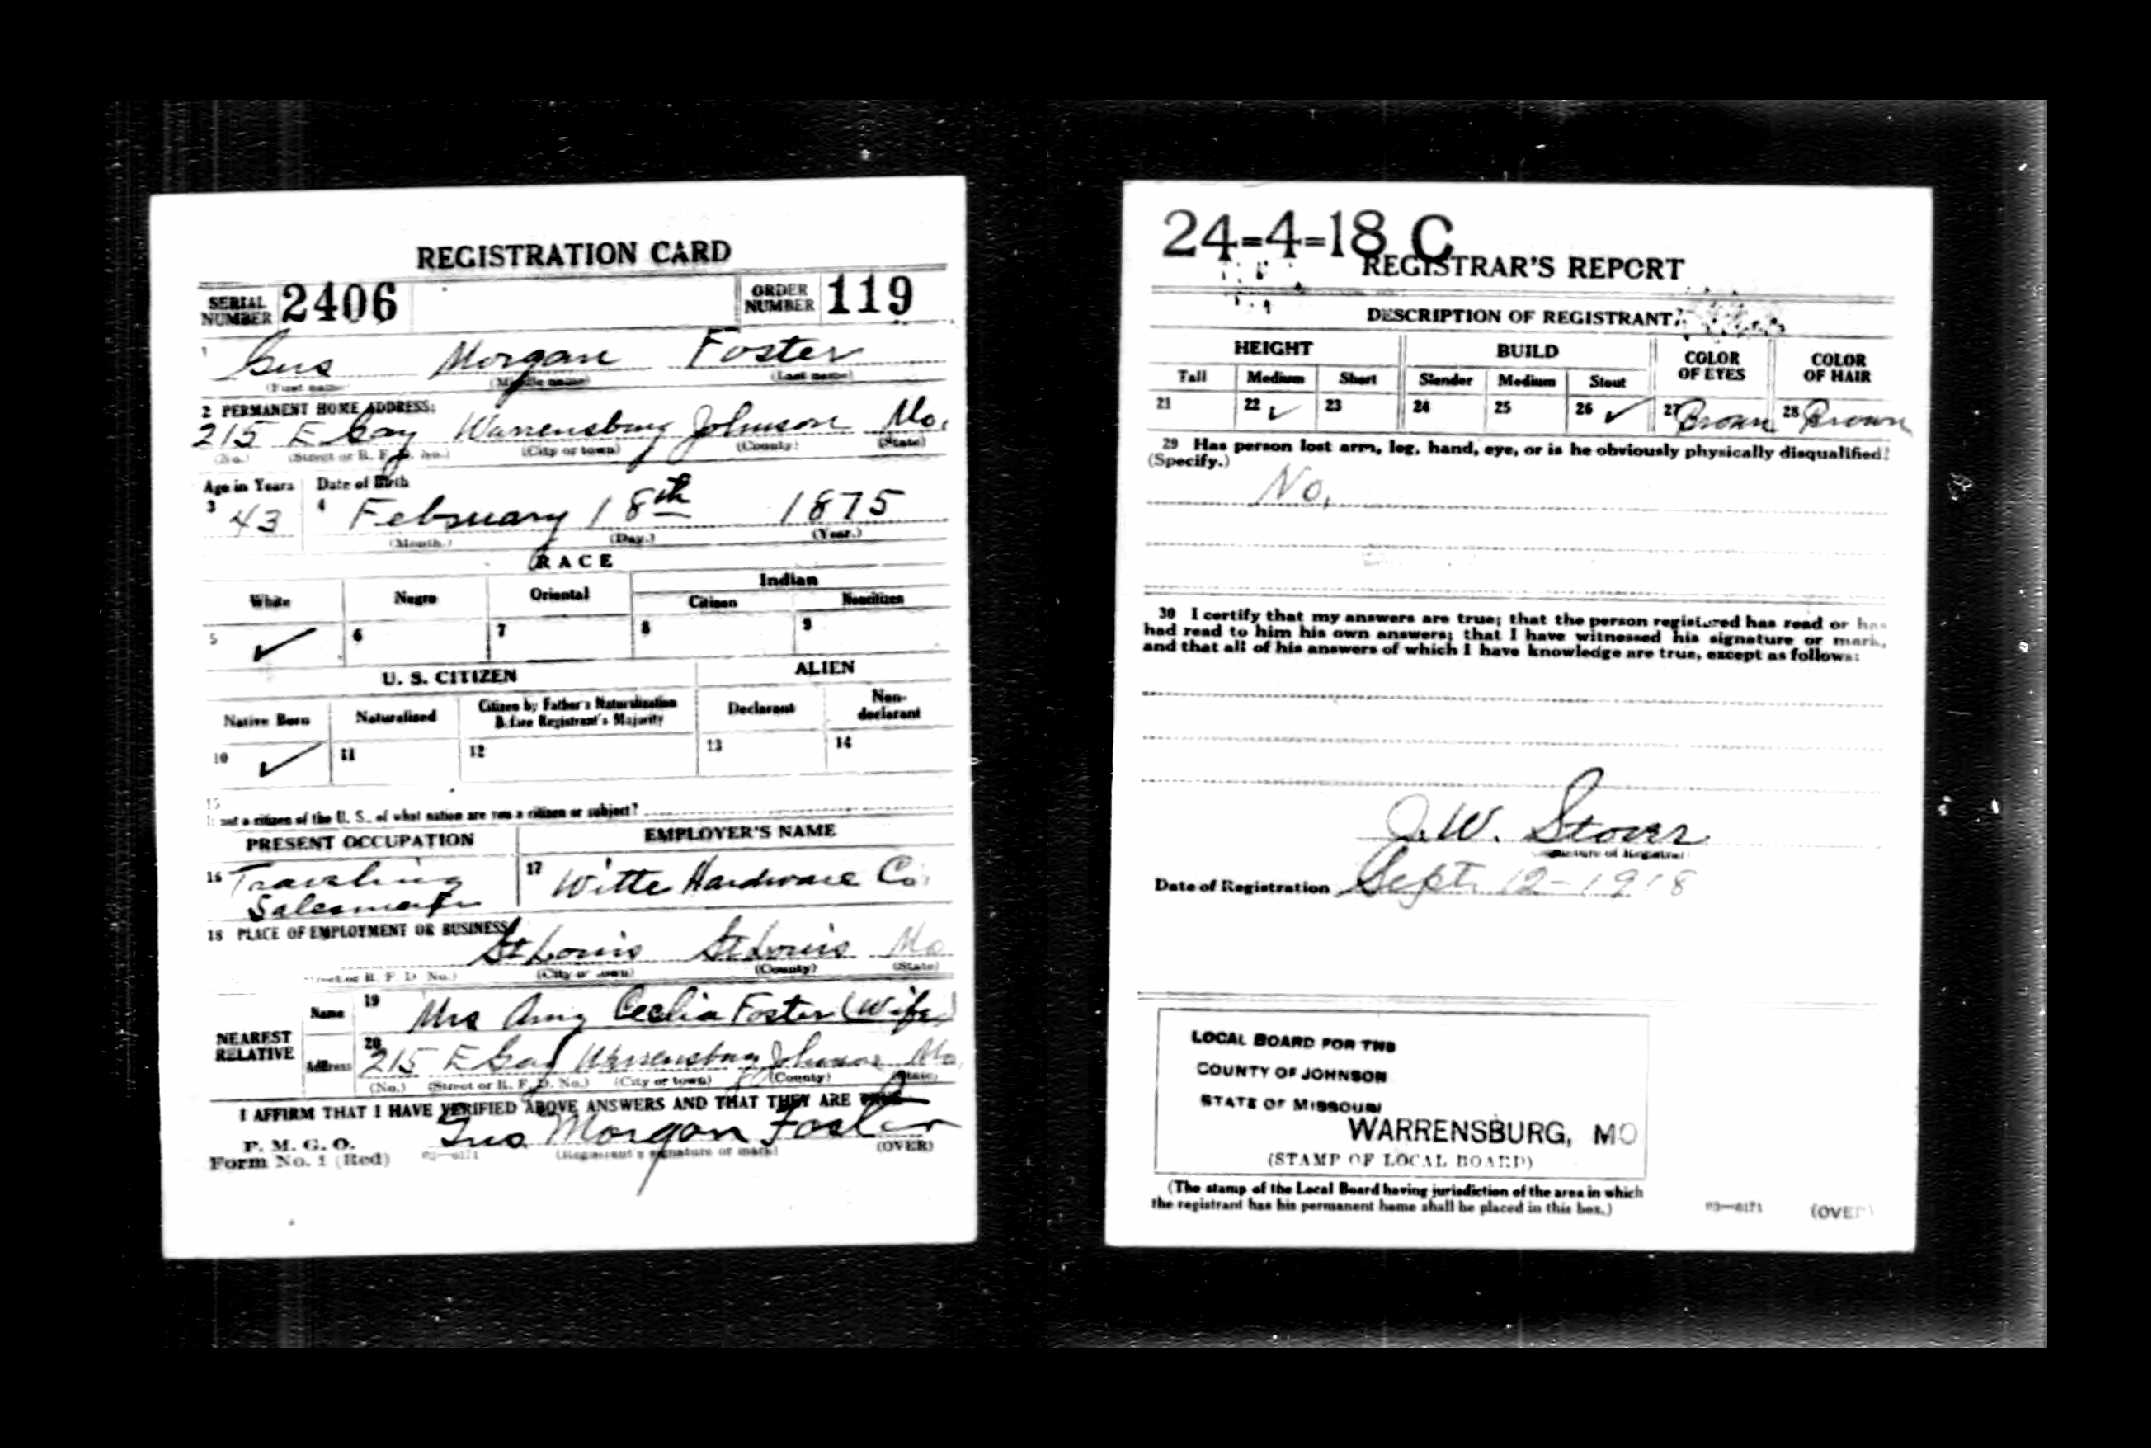 REGISTRATION CARD
SERIAL NUMBER 2406 ORDER NUMBER 119
1 Gus Morgan Foster
(First name) (Middle name) (Last name)
2 PERMANENT HOME ADDRESS:
215 E Gay Warrensburg Johnson Mo.
(No.) (Street or R. F. D. No.) (City or town) (County) (State)
Age in Years Date of Birth
3 43 4 February 18th 1875
(Month.) (Day.) (Year.)
RACE
White Negro Oriental Indian
Citizen Noncitizen
5 ✓ 6 7 8 9
U. S. CITIZEN ALIEN
Native Born Naturalized Citizen by Father's Naturalization Before Registrant's Majority Declarant Non-declarant
10 ✓ 11 12 13 14
15
If not a citizen of the U. S., of what nation are you a citizen or subject?
PRESENT OCCUPATION EMPLOYER'S NAME
16 Traveling Salesman 17 Witte Hardware Co.
18 PLACE OF EMPLOYMENT OR BUSINESS
St Louis St Louis Mo
(Street or R. F. D. No.) (City or town) (County) (State)
NEAREST RELATIVE
Name 19 Mrs Amy Cecelia Foster (Wife)
Address 20 215 E Gay Warrensburg Johnson Mo.
(No.) (Street or R. F. D. No.) (City or town) (County) (State)
I AFFIRM THAT I HAVE VERIFIED ABOVE ANSWERS AND THAT THEY ARE TRUE
P. M. G. O.
Form No. 1 (Red) 03—6171 Gus Morgan Foster
(Registrant's signature or mark) (OVER)
24-4-18 C
REGISTRAR'S REPORT
DESCRIPTION OF REGISTRANT
HEIGHT BUILD COLOR OF EYES COLOR OF HAIR
Tall Medium Short Slender Medium Stout
21 22 ✓ 23 24 25 26 ✓ 27 Brown 28 Brown
29 Has person lost arm, leg, hand, eye, or is he obviously physically disqualified?
(Specify.)
No.
30 I certify that my answers are true; that the person registered has read or has
had read to him his own answers; that I have witnessed his signature or mark,
and that all of his answers of which I have knowledge are true, except as follows:
J. W. Stover
(Signature of Registrar)
Date of Registration Sept. 12-1918
LOCAL BOARD FOR THE
COUNTY OF JOHNSON
STATE OF MISSOURI
WARRENSBURG, MO
(STAMP OF LOCAL BOARD)
(The stamp of the Local Board having jurisdiction of the area in which
the registrant has his permanent home shall be placed in this box.)
03—6171 (OVER)